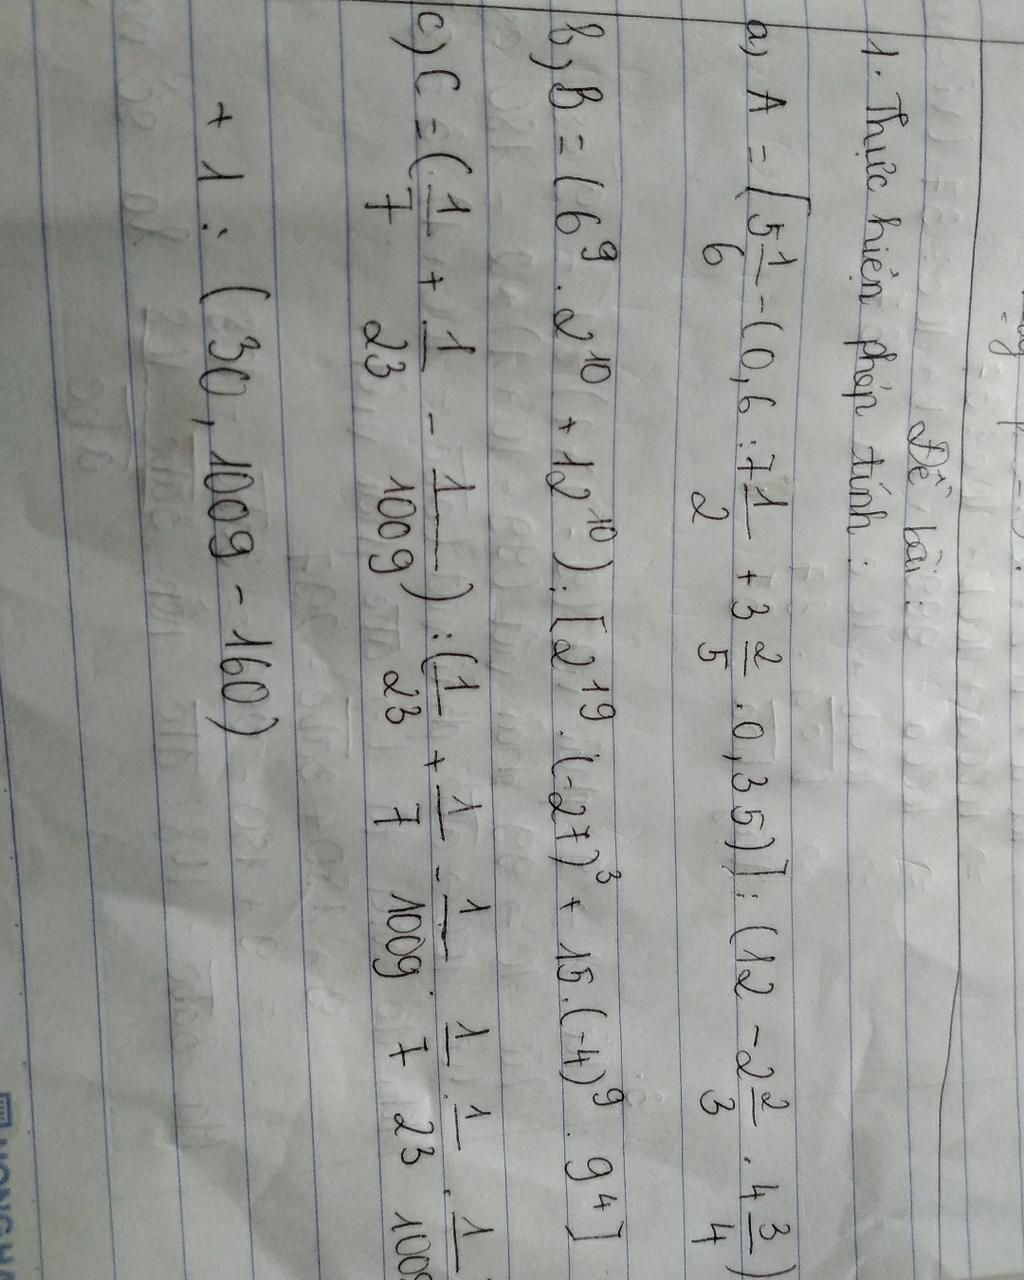 Đề bài:
1. Thực hiện phép tính:
a) A = [5 1/6 - (0,6 : 7 1/2 + 3 2/5 . 0,35)] : (12 - 2 2/3 . 4 3/4)
b) B = (6^9 . 2^10 + 12^10) : [2^19 . (-27)^3 + 15 . (-4)^9 . 9^4]
c) C = (1/7 + 1/23 - 1/1009) : (1/23 + 1/7 - 1/1009 . 1/7 . 1/23 . 1/1009
+ 1 : (30,1009 - 160)